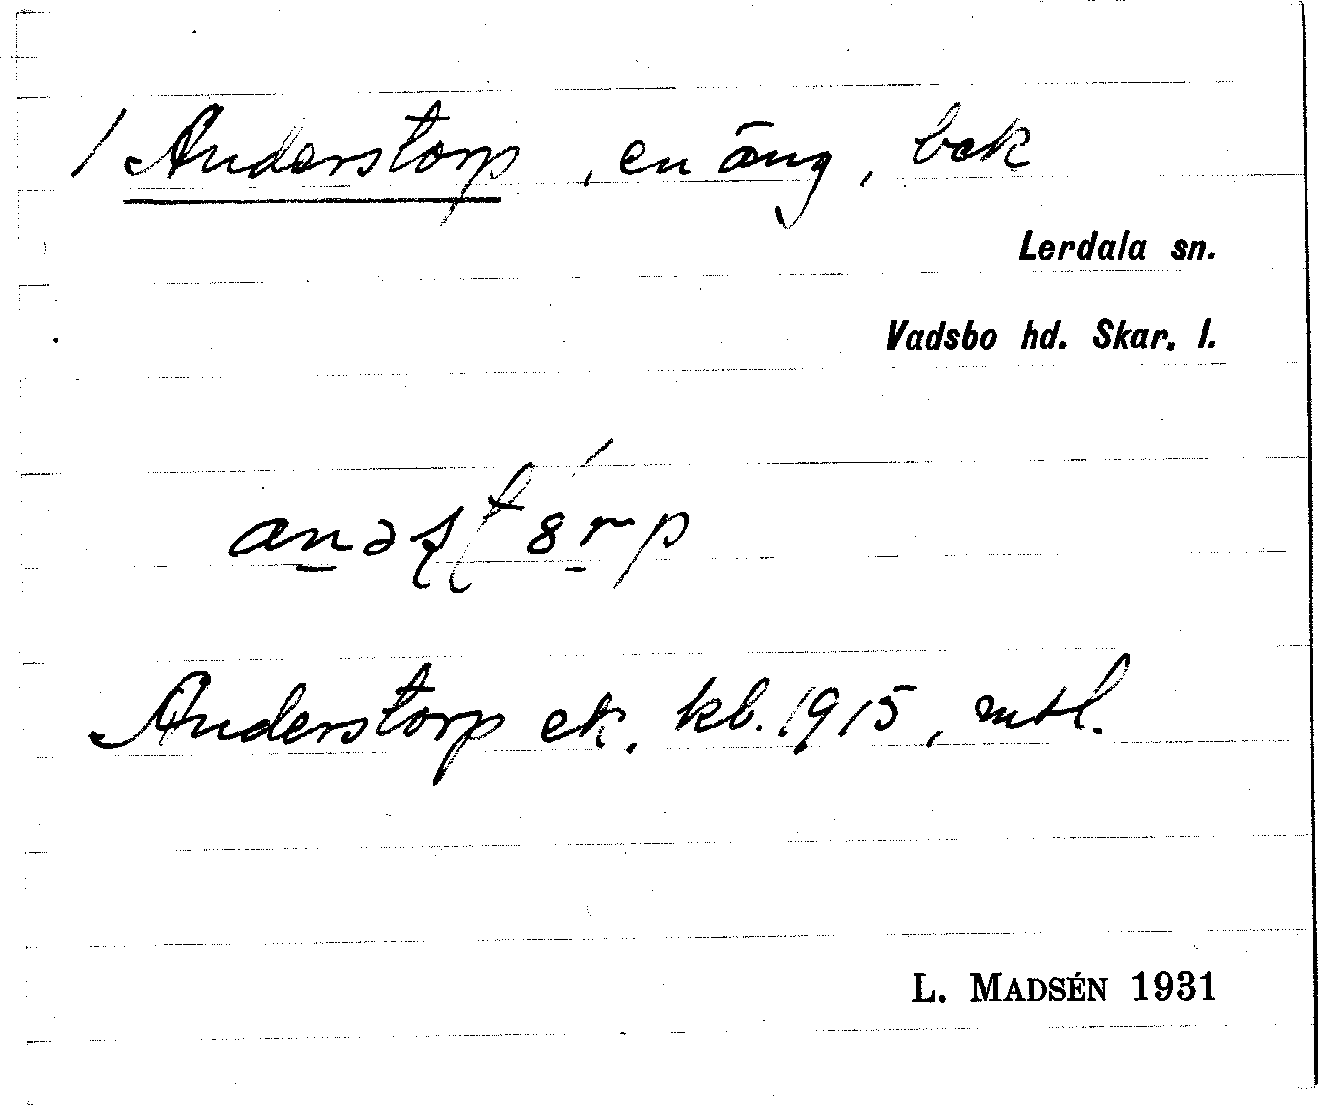 / Anderstorp, en äng, bek
Lerdala sn.
Vadsbo hd. Skar. l.
Anderstorp ek. kb. 1915, mtl.
L. MADSÉN 1931